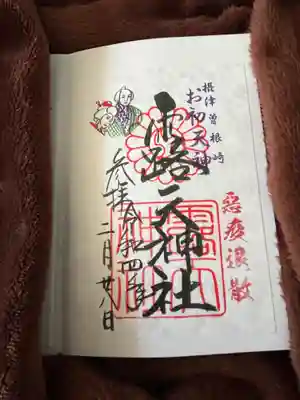 摂津曽根崎
お初天神
惡疫退散
露天神社
参拝令和四年
二月廿八日